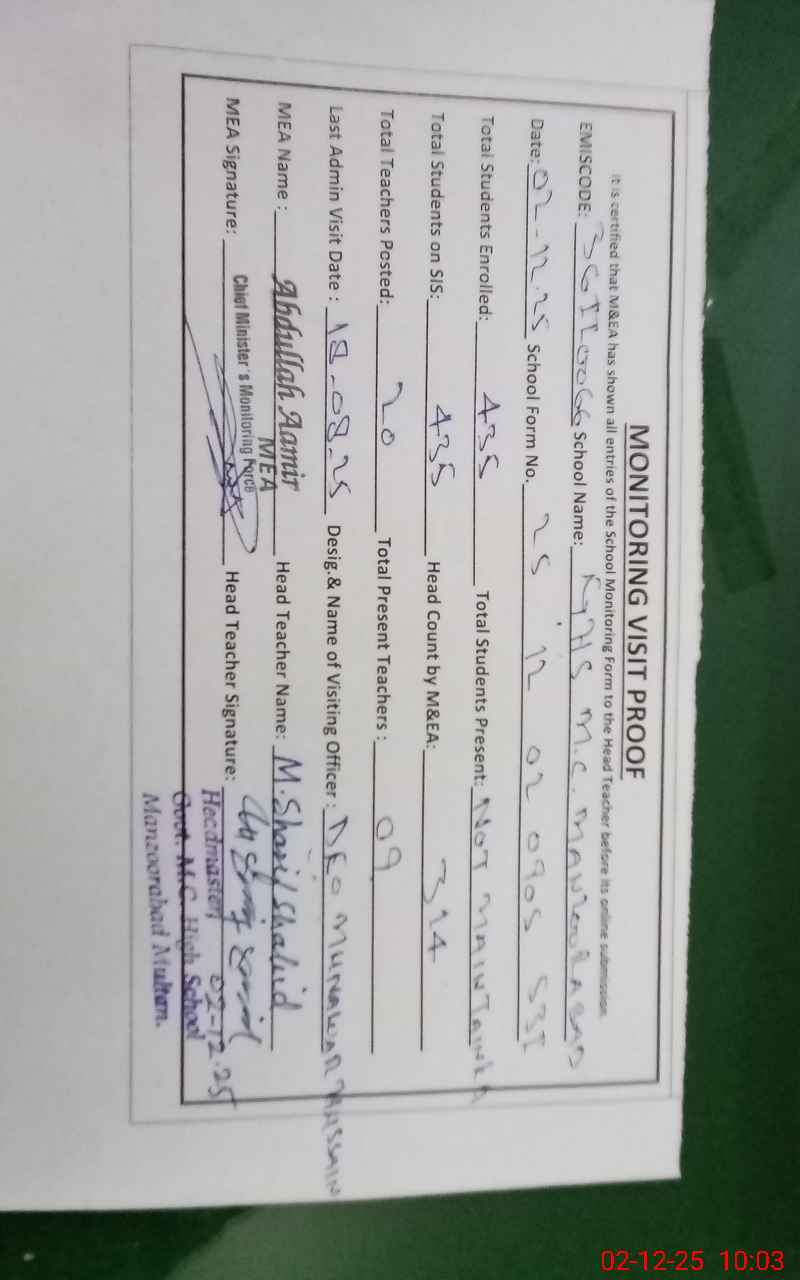 MONITORING VISIT PROOF
It is certified that M&EA has shown all entries of the School Monitoring Form to the Head Teacher before its online submission.
EMISCODE: School Name: M.C. MANZOORABAD
Date: 02-12-25 School Form No. 25 12 02 0905 531
Total Students Enrolled: 435 Total Students Present: NOT MAINTAINED
Total Students on SIS: 435 Head Count by M&EA: 314
Total Teachers Posted: 20 Total Present Teachers : 09
Last Admin Visit Date : 18-08-25 Desig.& Name of Visiting Officer : DEO MUNAWAR HUSSAIN
MEA Name : Abdullah Aamir Head Teacher Name: M. Sharif Shahid
MEA
Chief Minister's Monitoring Force
MEA Signature: Head Teacher Signature:
Headmaster 02-12-25
Govt. M.C. High School
Manzoorabad Multan.
02-12-25 10:03